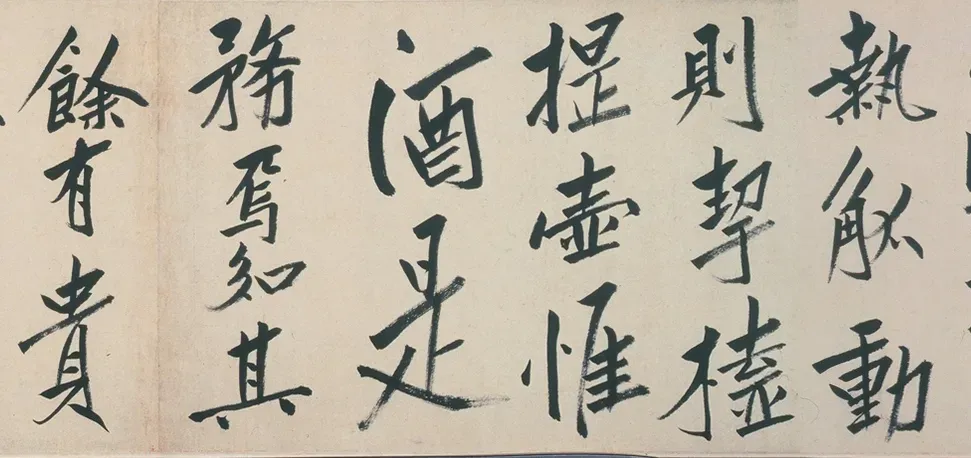 執觚動
則挈榼
提壺惟
酒是
務焉知其
餘有貴